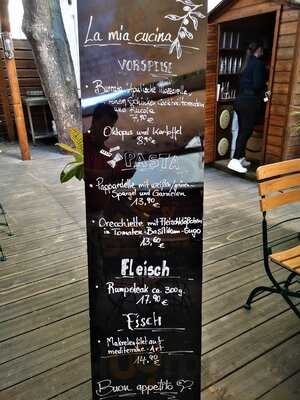 La mia cucina
VORSPEISE
• Burrata Apulische Mozzarella
rohem Schinken Cocktailtomaten
und Rucola
7,90€
• Oktopus und Kartoffel
8,90€
PASTA
• Pappardelle mit weißen/grünen
Spargel und Garnelen
13,90€
• Orecchiette mit Fleischbällchen
in Tomaten-Basilikum-Sugo
13,60
Fleisch
• Rumpsteak ca. 300g.
17.90€
Fisch
• Makrelenfilet auf
mediterrane-Art
14.90
Buon appetito